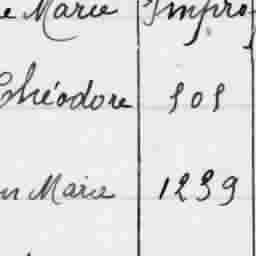 e Marie Impro-
Théodore 505
n Marie 1239